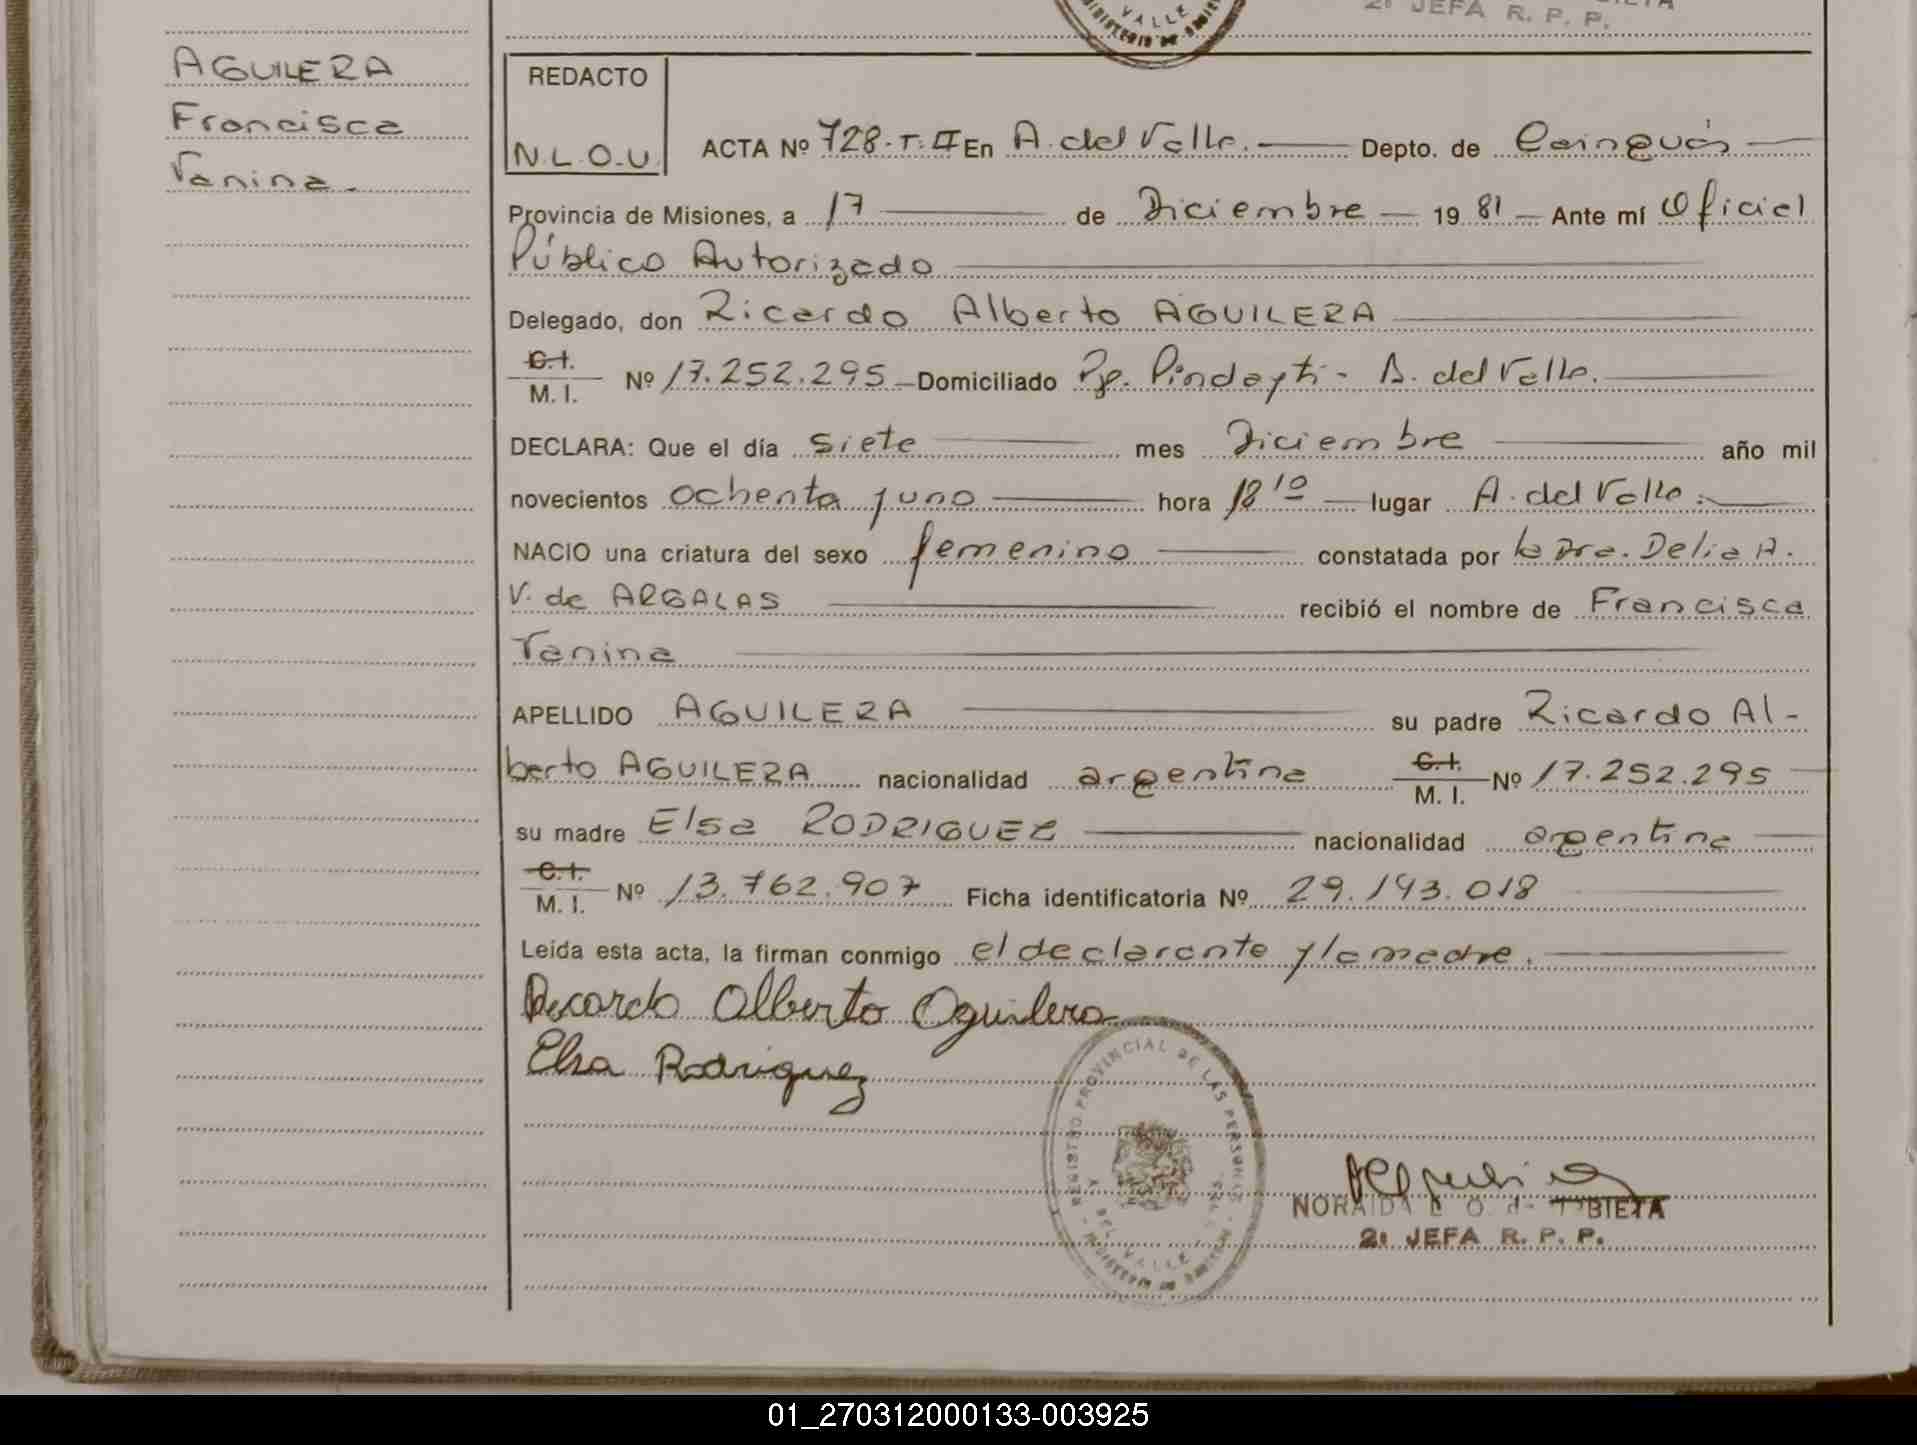 2ª JEFA R. P. P.
VALLE
AGUILERA
Francisca
Yanina.
REDACTO
N.L.O.U.
ACTA Nº 728-T.II En A. del Valle. Depto. de Cainguás
Provincia de Misiones, a 17 de Diciembre 1981 Ante mí Oficial
Público Autorizado
Delegado, don Ricardo Alberto AGUILERA
C.I. / M. I. Nº 17.252.295 Domiciliado Pje. Pindayti - A. del Valle.
DECLARA: Que el día siete mes Diciembre año mil
novecientos ochenta y uno hora 18 10 lugar A. del Valle.
NACIO una criatura del sexo femenino constatada por la Dra. Delia A.
V. de ARGALAS recibió el nombre de Francisca
Yanina
APELLIDO AGUILERA su padre Ricardo Al-
berto AGUILERA nacionalidad argentina C.I. / M. I. Nº 17.252.295
su madre Elsa RODRIGUEZ nacionalidad argentina
C.I. / M. I. Nº 13.762.907 Ficha identificatoria Nº 29.193.018
Leída esta acta, la firman conmigo el declarante y la madre.
Ricardo Alberto Aguilera
Elsa Rodriguez
REGISTRO PROVINCIAL DE LAS PERSONAS
DEL VALLE
NORAIDA L. O. de
2ª JEFA R. P. P.
01_270312000133-003925